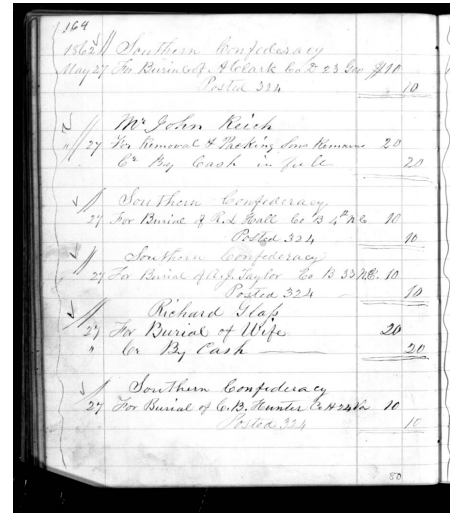 164
1862 // Southern Confederacy
May 27 For Burial of A Clark Co D 23 Geo $10
Posted 324 10
Mr John Reich
" // 27 For Removal & Packing Sons Remains 20
Cr By Cash in full 20
// Southern Confederacy
27 For Burial of R.L Hall Co B 4th N.C 10
Posted 324 10
// Southern Confederacy
27 For Burial of A.J. Taylor Co B 33 N.C. 10
Posted 324 10
// Richard Glass
27 For Burial of Wife 20
" Cr By Cash 20
// Southern Confederacy
27 For Burial of C.B. Hunter Co H 24 Va 10
Posted 324 10
80